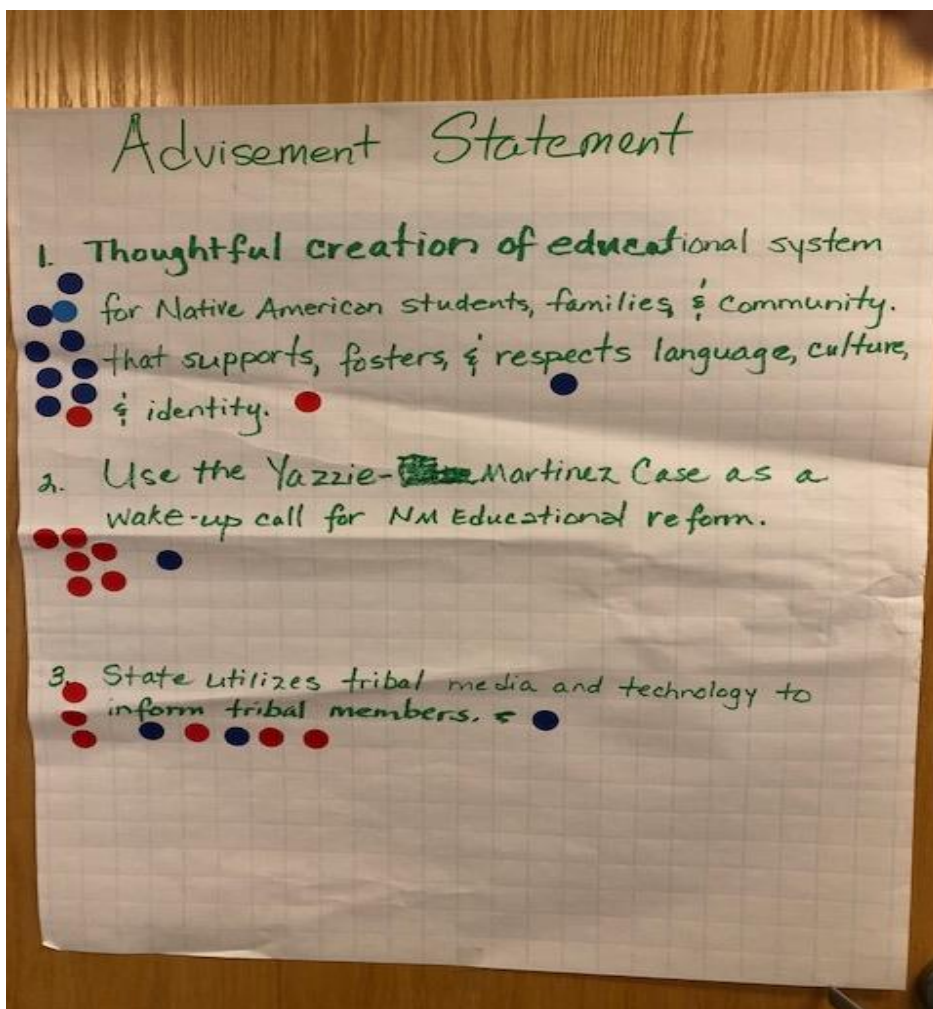 Advisement Statement
1. Thoughtful creation of educational system
for Native American students, families & community.
that supports, fosters, & respects language, culture,
& identity.
2. Use the Yazzie-Martinez Case as a
wake-up call for NM Educational reform.
3. State utilizes tribal media and technology to
inform tribal members.